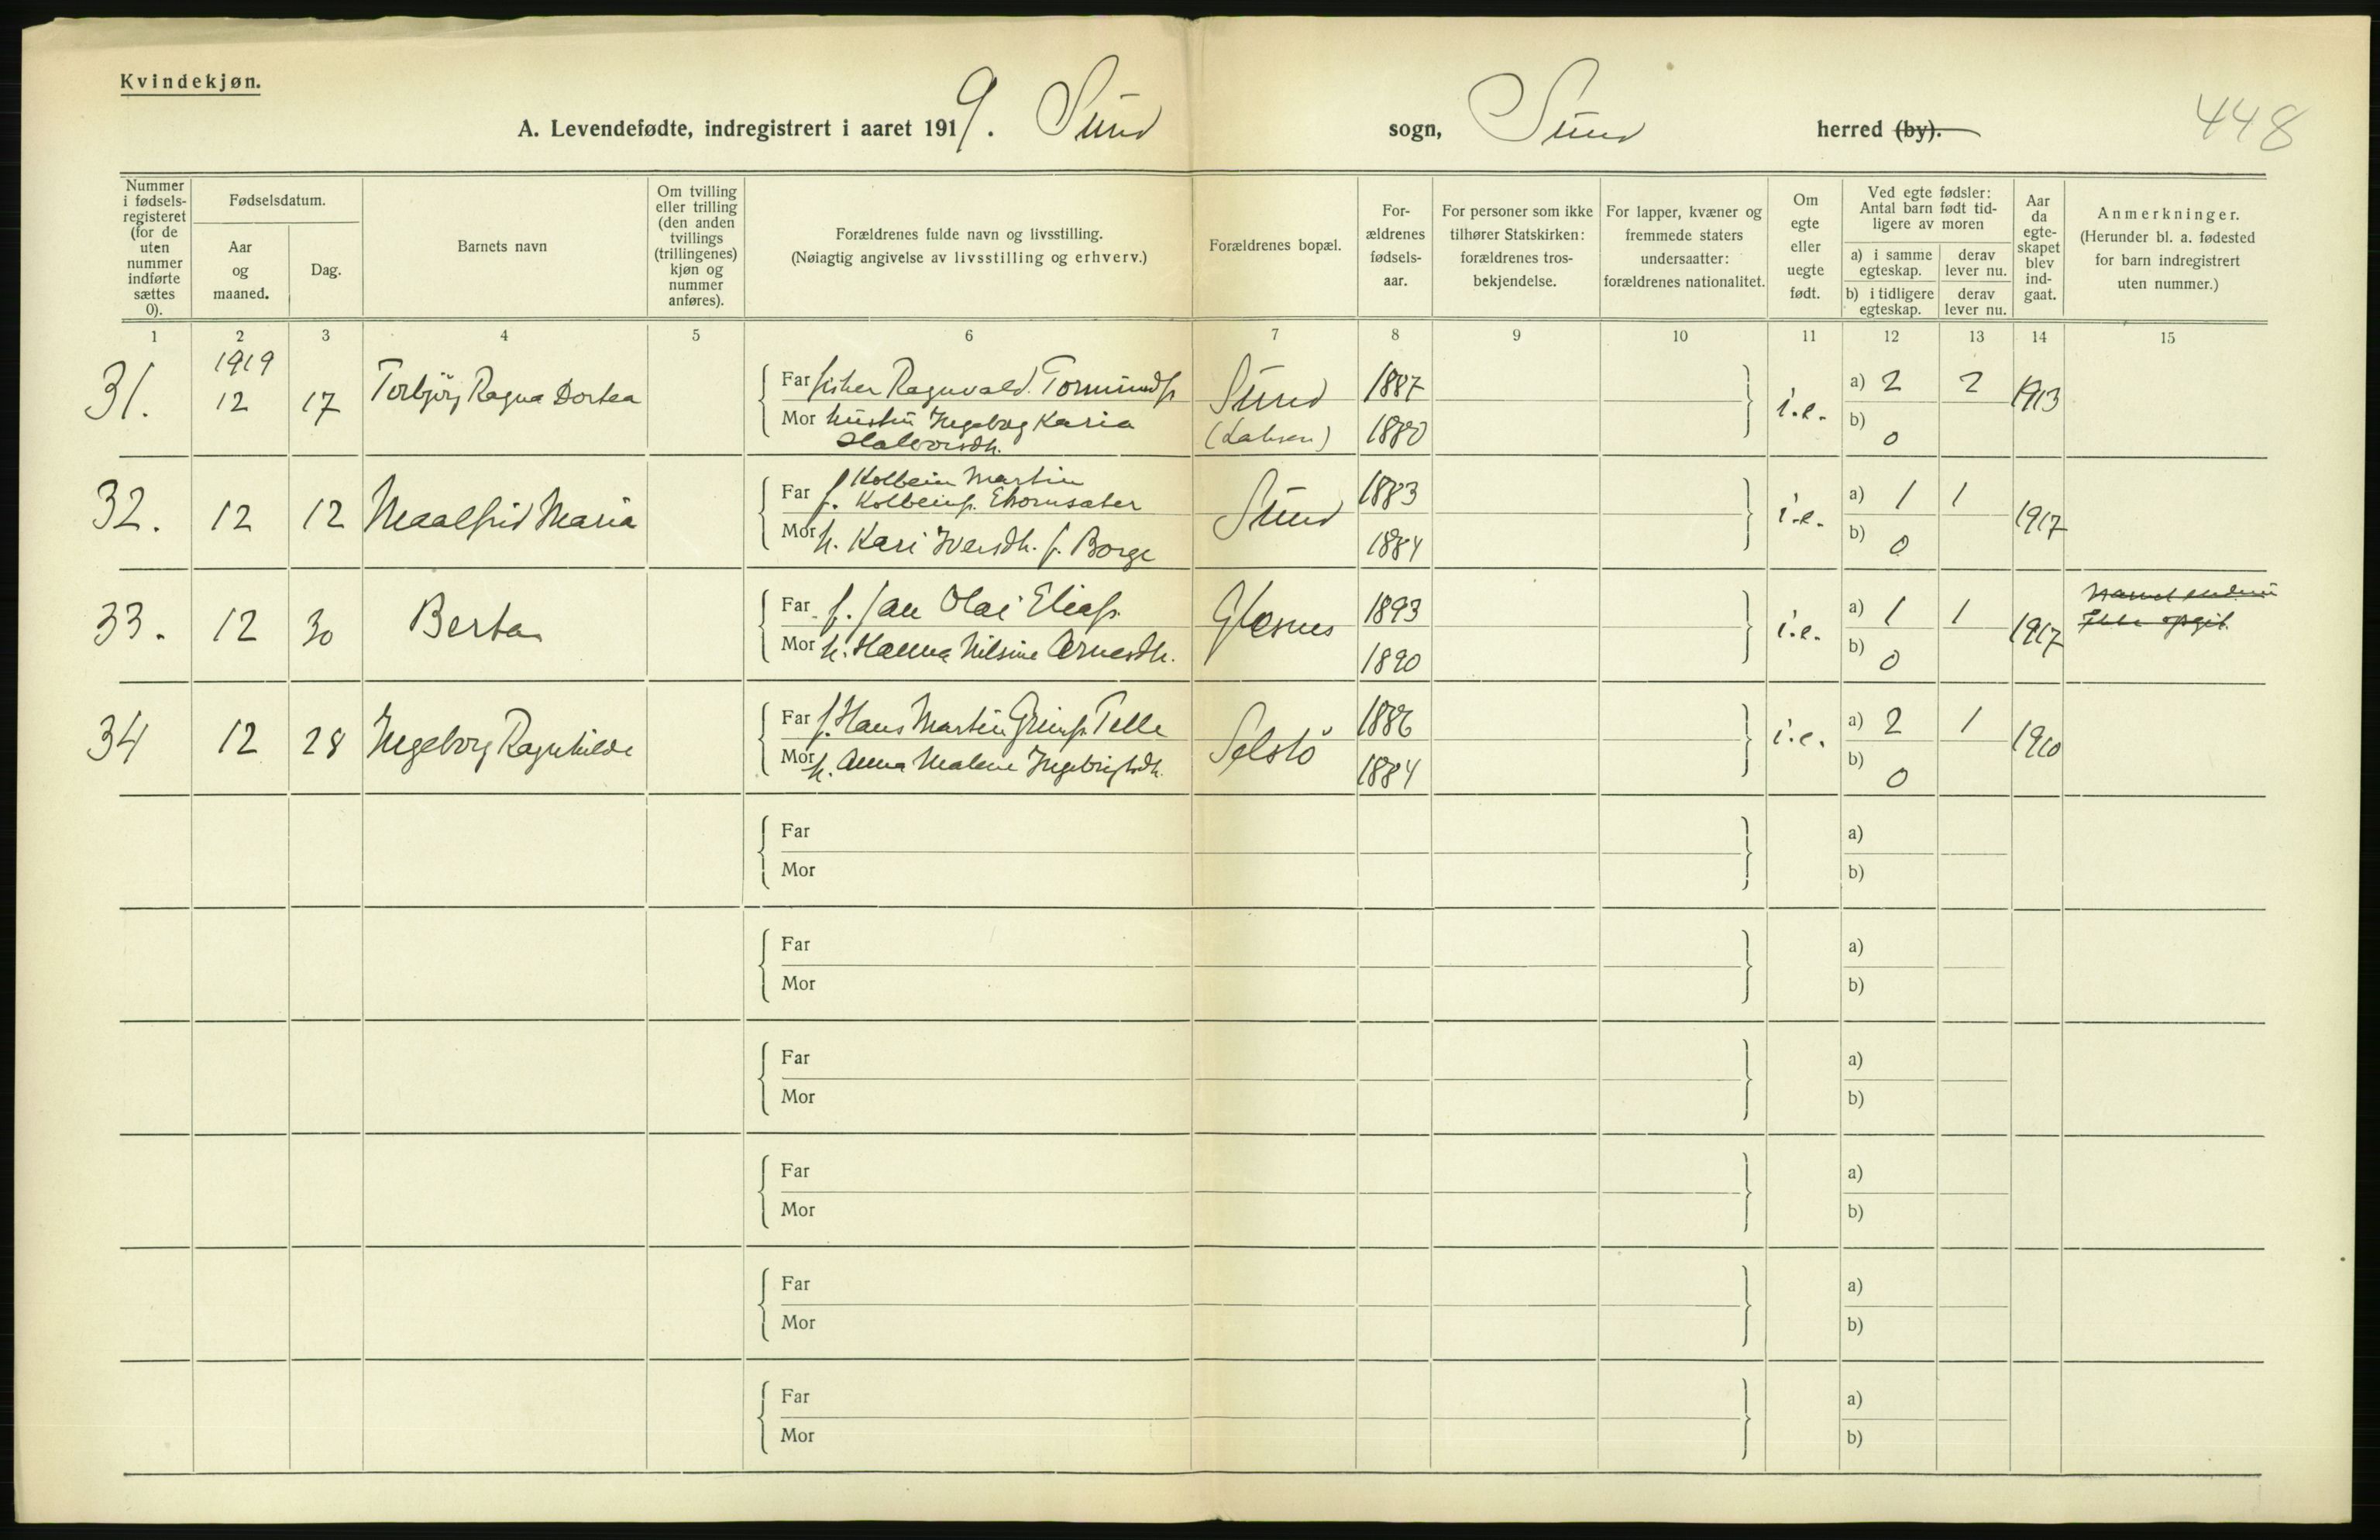 Kvindekjøn.
A. Levendefødte, indregistrert i aaret 1919. Sund sogn, Sund herred (by).
448
Nummer i fødsels-registeret (for de uten nummer indførte sættes 0).
Fødselsdatum.
Aar og maaned.
Dag.
Barnets navn
Om tvilling eller trilling (den anden tvillings (trillingenes) kjøn og nummer anføres).
Forældrenes fulde navn og livsstilling.
(Nøiagtig angivelse av livsstilling og erhverv.)
Forældrenes bopæl.
For-ældrenes fødsels-aar.
For personer som ikke tilhører Statskirken: forældrenes tros-bekjendelse.
For lapper, kvæner og fremmede staters undersaatter: forældrenes nationalitet.
Om egte eller uegte født.
Ved egte fødsler: Antal barn født tid-ligere av moren
a) i samme egteskap.
derav lever nu.
b) i tidligere egteskap.
derav lever nu.
Aar da egte-skapet blev ind-gaat.
Anmerkninger.
(Herunder bl. a. fødested for barn indregistrert uten nummer.)
1 2 3 4 5 6 7 8 9 10 11 12 13 14 15
1919
31. 12 17 Torbjørg Ragna Dortea
Far fisker Ragnvald Tormundss. Sund 1887
Mor hustru Ingeborg Karia Halvorsdtr. 1880
i.e. a) 2 2 1913
b) 0
32. 12 12 Maalfrid Maria
Far f. Kolbein Martin Kolbeinss. Sund 1883
Mor h. Kari Iversdtr. f. Borge 1884
i.e. a) 1 1 1917
b) 0
33. 12 30 Berta
Far f. Jan Olai Eliass. Glesnes 1893
Mor h. Hanna Nilsine Arnesdtr. 1890
i.e. a) 1 1 1917
b) 0
Ikke opgit.
34 12 28 Ingeborg Ragnhilde
Far f. Hans Martin Grimss. Telle Selstö 1886
Mor h. Anna Malene Ingebrigtsdtr. 1884
i.e. a) 2 1 1910
b) 0
Far a)
Mor b)
Far a)
Mor b)
Far a)
Mor b)
Far a)
Mor b)
Far a)
Mor b)
Far a)
Mor b)